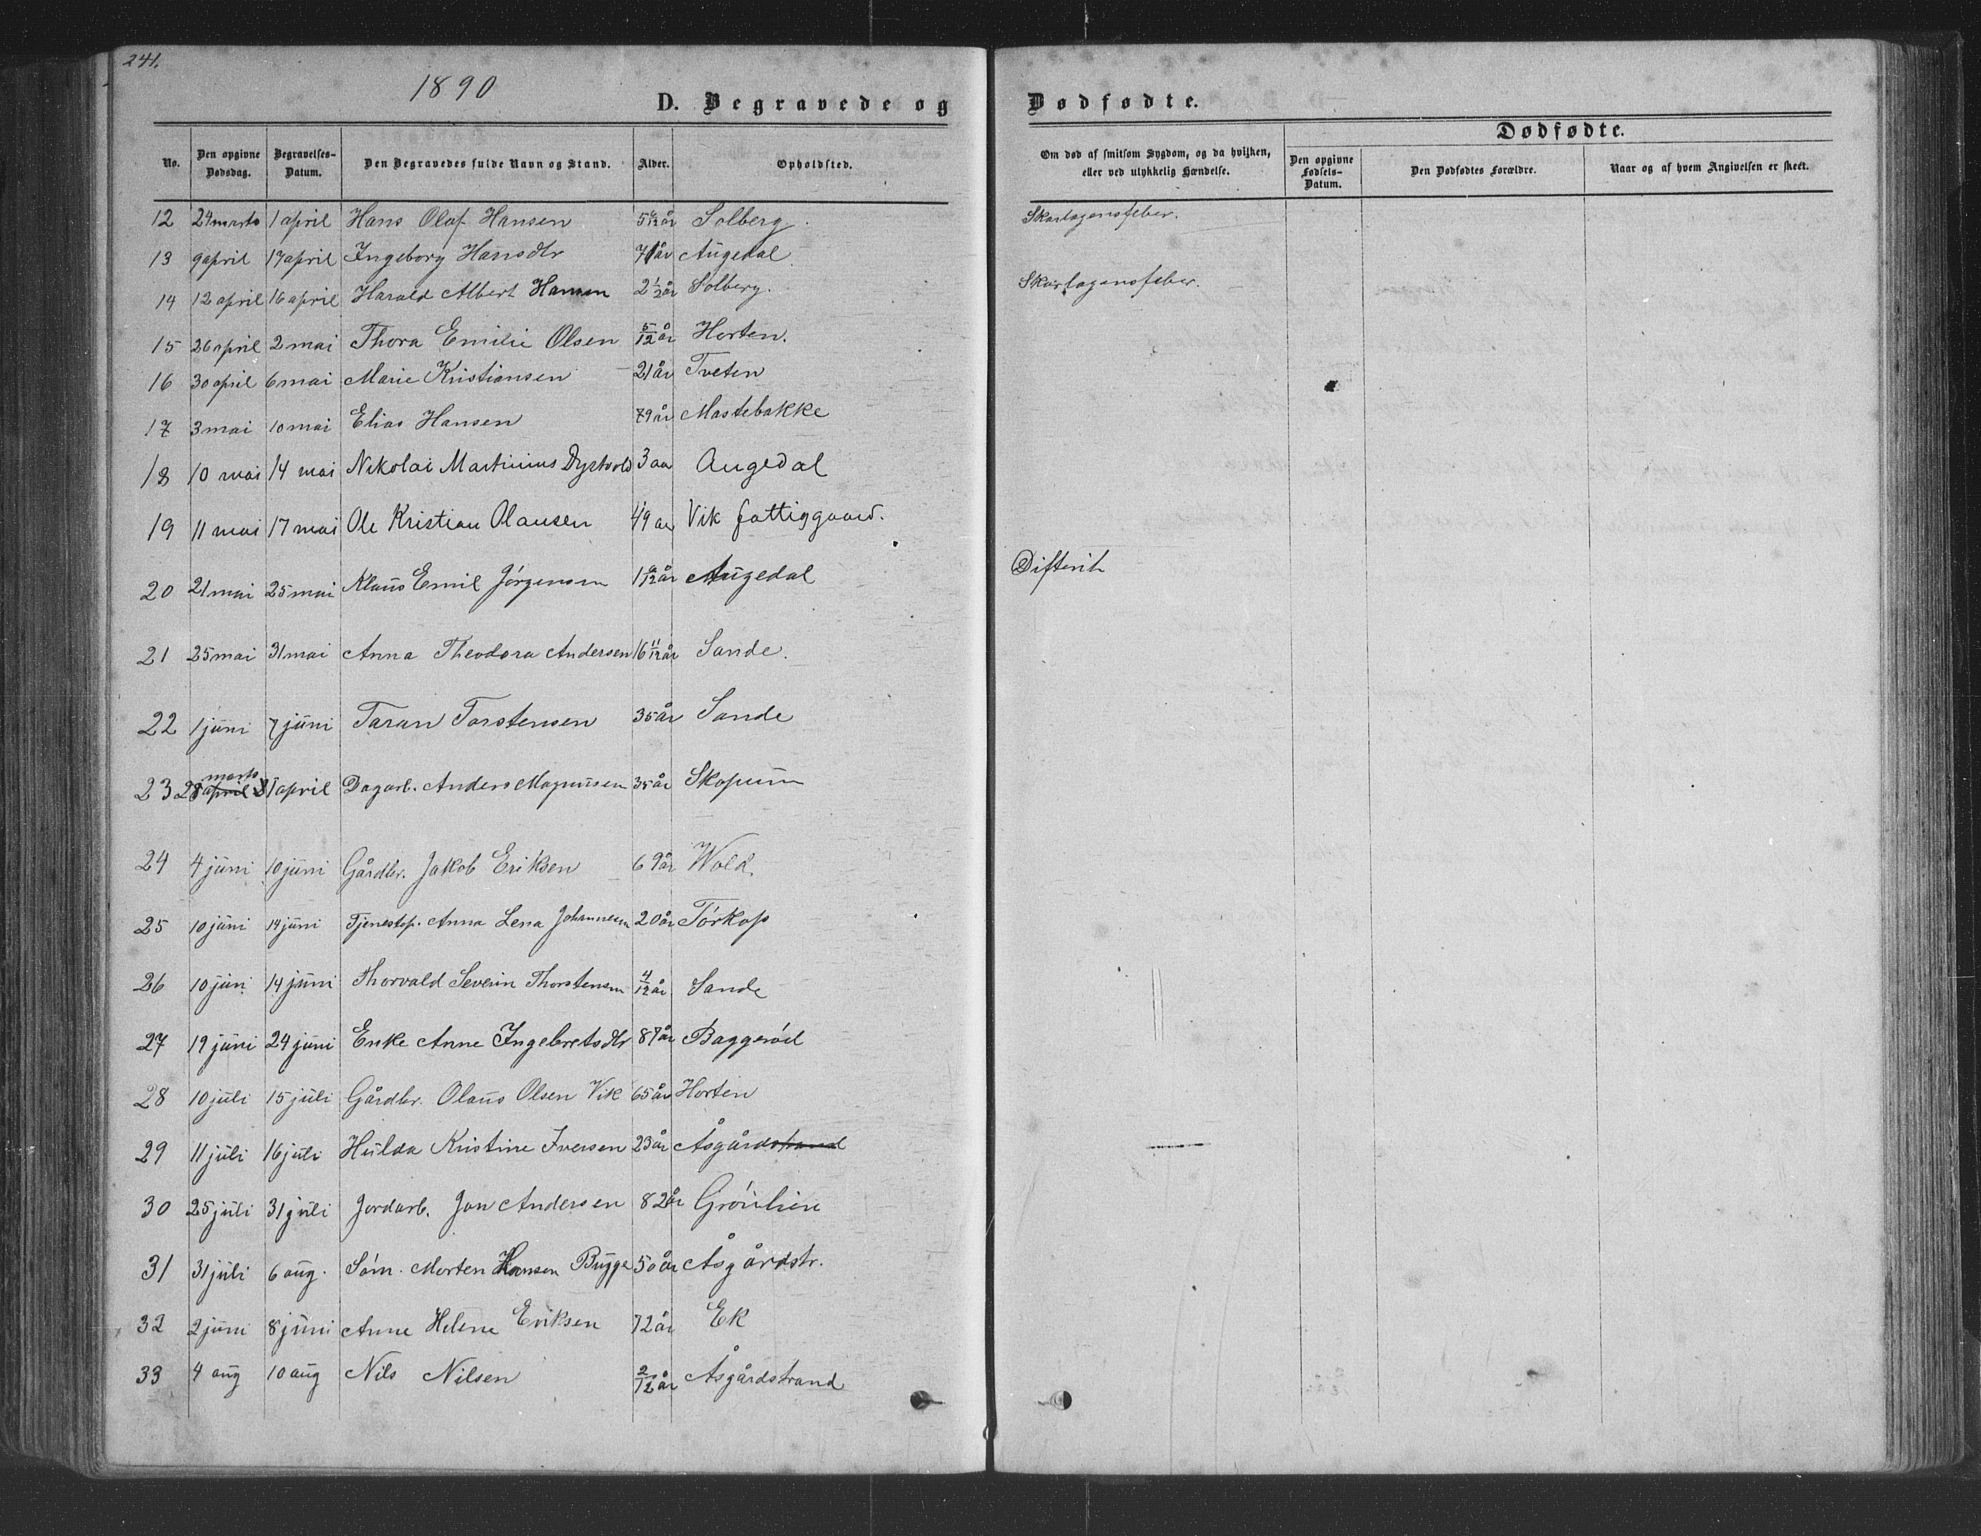 241.
1890
D. Begravede og Dødfødte.
No. Den opgivne Dødsdag. Begravelses-Datum. Den Begravedes fulde Navn og Stand. Alder. Opholdsted. Om død af smitsom Sygdom, og da hvilken, eller ved ulykkelig Hændelse. Dødfødte. Den opgivne Fødsels-Datum. Den Dødfødtes Forældre. Naar og af hvem Angivelsen er skeet.
12 24 marts 1 april Hans Olaf Hansen Solberg. Skarlagensfeber.
13 9 april 17 april Ingeborg Hansdtr 71 år Augedal
14 12 april 16 april Harald Albert Hansen 2 1/2 år Solberg. Skarlagensfeber.
15 26 april 2 mai Thora Emilie Olsen 5/12 år Horten.
16 30 april 6 mai Marie Kristiansen 21 år Tveten
17 3 mai 10 mai Elias Hansen 79 år Mastebakke
18 10 mai 14 mai Nikolai Martinius 3 aar Augedal
19 11 mai 17 mai Ole Kristian Olausen 49 aar Vik fattiggaard.
20 21 mai 25 mai Klaus Emil Jörgensen Augedal Difterit
21 25 mai 31 mai Anna Theodora Andersen 16 11/12 år Sande.
22 1 juni 7 juni Taran Torstensen 35 år Sande
23 28 marts april 1 april Dagarb. Anders Magnussen 35 år Skopum
24 4 juni 10 juni Gårdbr. Jakob Eriksen 69 år Wold.
25 10 juni 14 juni Tjenestep. Anna Lena Johannesen 20 år Törkop
26 10 juni 14 juni Thorvald Severin Thorstensen 4/12 år Sande
27 19 juni 24 juni Enke Anne Ingebretsdtr 87 år Baggeröd
28 10 juli 15 juli Gårdbr. Olaus Olsen Vik 65 år Horten
29 11 juli 16 juli Hulda Kristine Iversen 23 år Åsgårdstrand
30 25 juli 31 juli Jordarb. Jan Andersen 82 år Grönlien
31 31 juli 6 aug. Söm. Morten Hansen Bugge 50 år Åsgårdstr.
32 2 juni 8 juni Anne Helene Eriksen 72 år Ek
33 4 aug 10 aug Nils Nilsen 2/12 år Åsgårdstrand